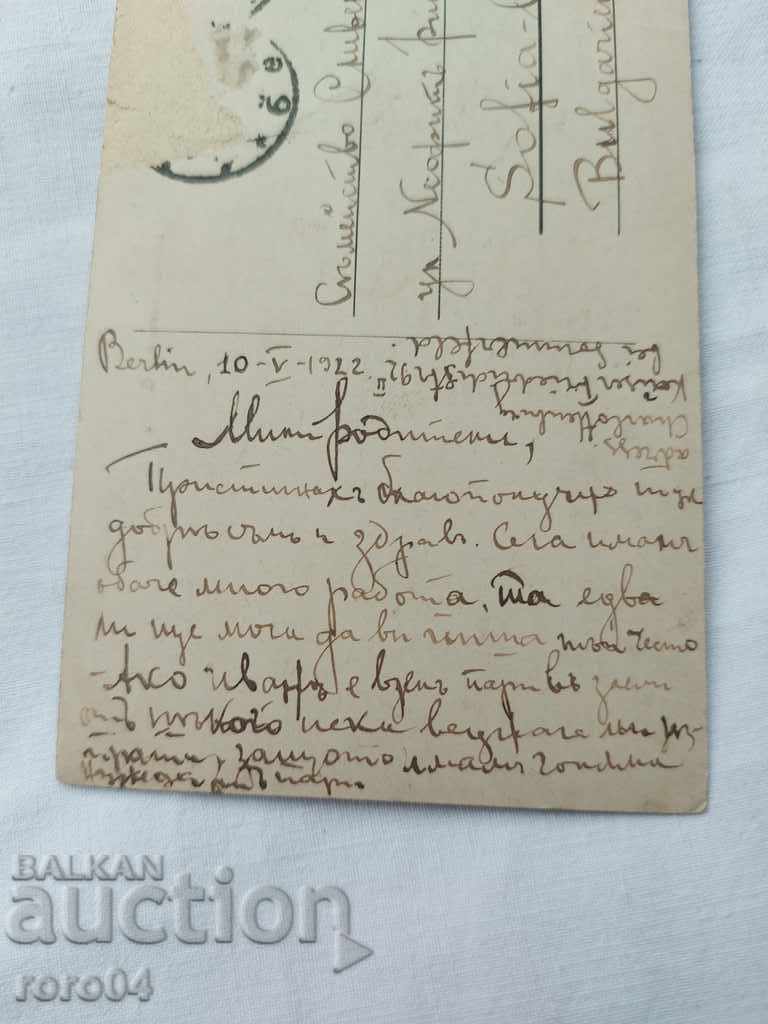 Съмейство Сливе
ул. Неофитъ Рил
Sofia-
Bulgarien
Berlin, 10-V-1922
адрес:
Charlottenburg
Kaiser Friedrichstr 92 II
bei Sommerfeld.
Мили родители,
Пристигнахъ благополучно тук
добръ съмъ и здравъ. Сега имамъ
обаче много работа, та едва
ли ще мога да ви пиша тъй често
-Ако Иванъ е взелъ пари въ заем
отъ нѣкого нека веднага ми из-
прати, защото имамъ голѣма
нужда отъ пари.
BALKAN
auction
roro04